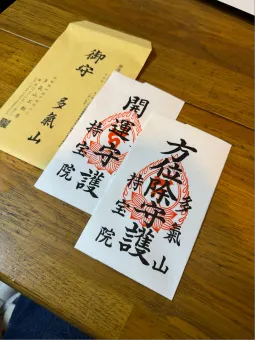 御守
多氣山
開運守護
持宝院
方位除守護
多氣山
持宝院